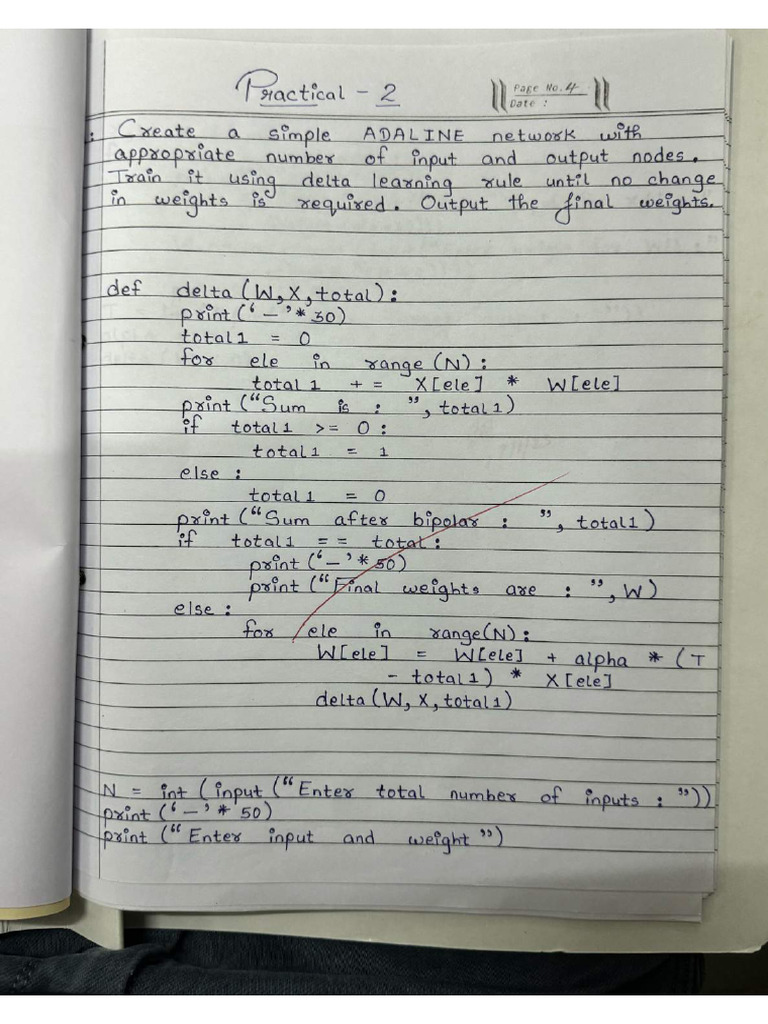 Practical - 2
Page No. 4
Date :
: Create a simple ADALINE network with
appropriate number of input and output nodes.
Train it using delta learning rule until no change
in weights is required. Output the final weights.
def delta (W, X, total) :
print(‘-’* 30)
total1 = 0
for ele in range (N) :
total 1 += X[ele] * W[ele]
print (“Sum is : ”, total1)
if total1 >= 0 :
total1 = 1
else :
total1 = 0
print (“Sum after bipolar : ”, total1)
if total1 == total :
print (‘-’* 50)
print (“Final weights are : ”, W)
else :
for ele in range(N) :
W[ele] = W[ele] + alpha * (T
- total1) * X[ele]
delta (W, X, total1)
N = int (input (“Enter total number of inputs : ”))
print (‘-’* 50)
print (“Enter input and weight”)